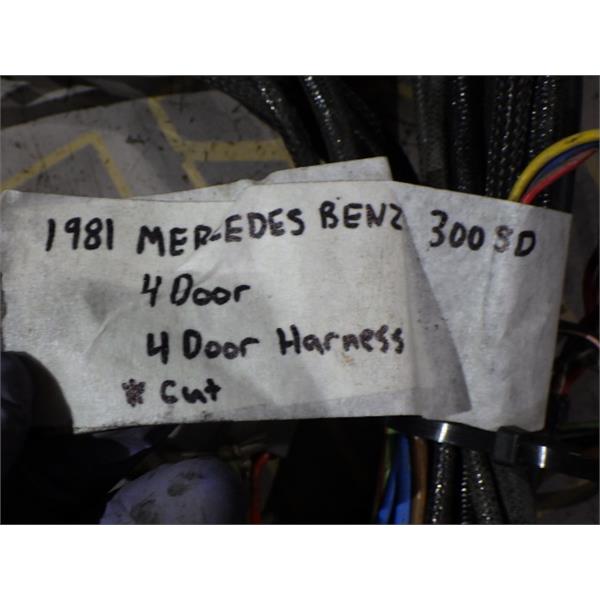 1981 MERCEDES BENZ 300SD
4 Door
4 Door Harness
* Cut